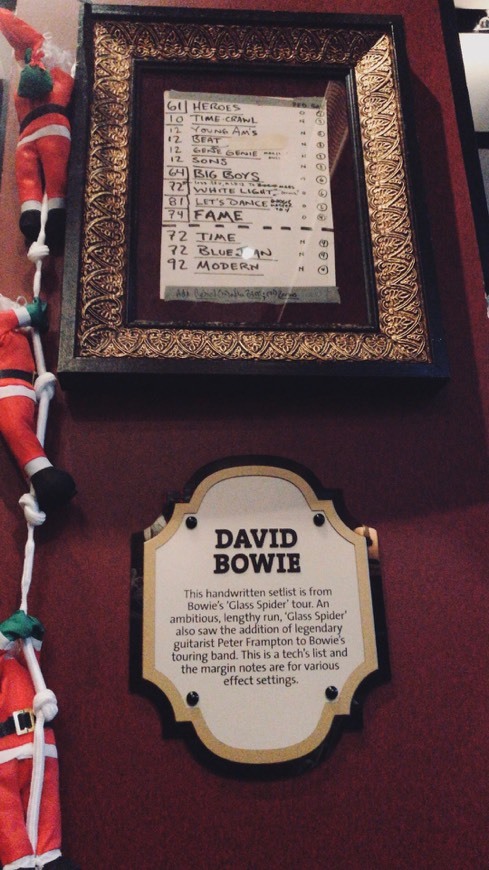 61 HEROES
10 TIME-CRAWL
12 YOUNG AM'S
12 BEAT
12 GENIE GENIE
12 SONS
64 BIG BOYS
72 WHITE LIGHT
81 LET'S DANCE
74 FAME
72 TIME
72 BLUE JEAN
92 MODERN
DAVID
BOWIE
This handwritten setlist is from
Bowie's 'Glass Spider' tour. An
ambitious, lengthy run, 'Glass Spider'
also saw the addition of legendary
guitarist Peter Frampton to Bowie's
touring band. This is a tech's list and
the margin notes are for various
effect settings.